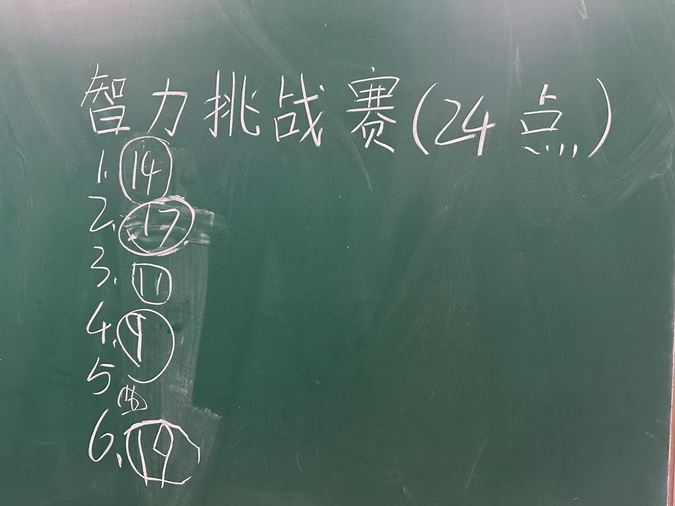 智力挑战赛(24点)
1. 14
2. 17
3. 11
4. 9
5
6. 19